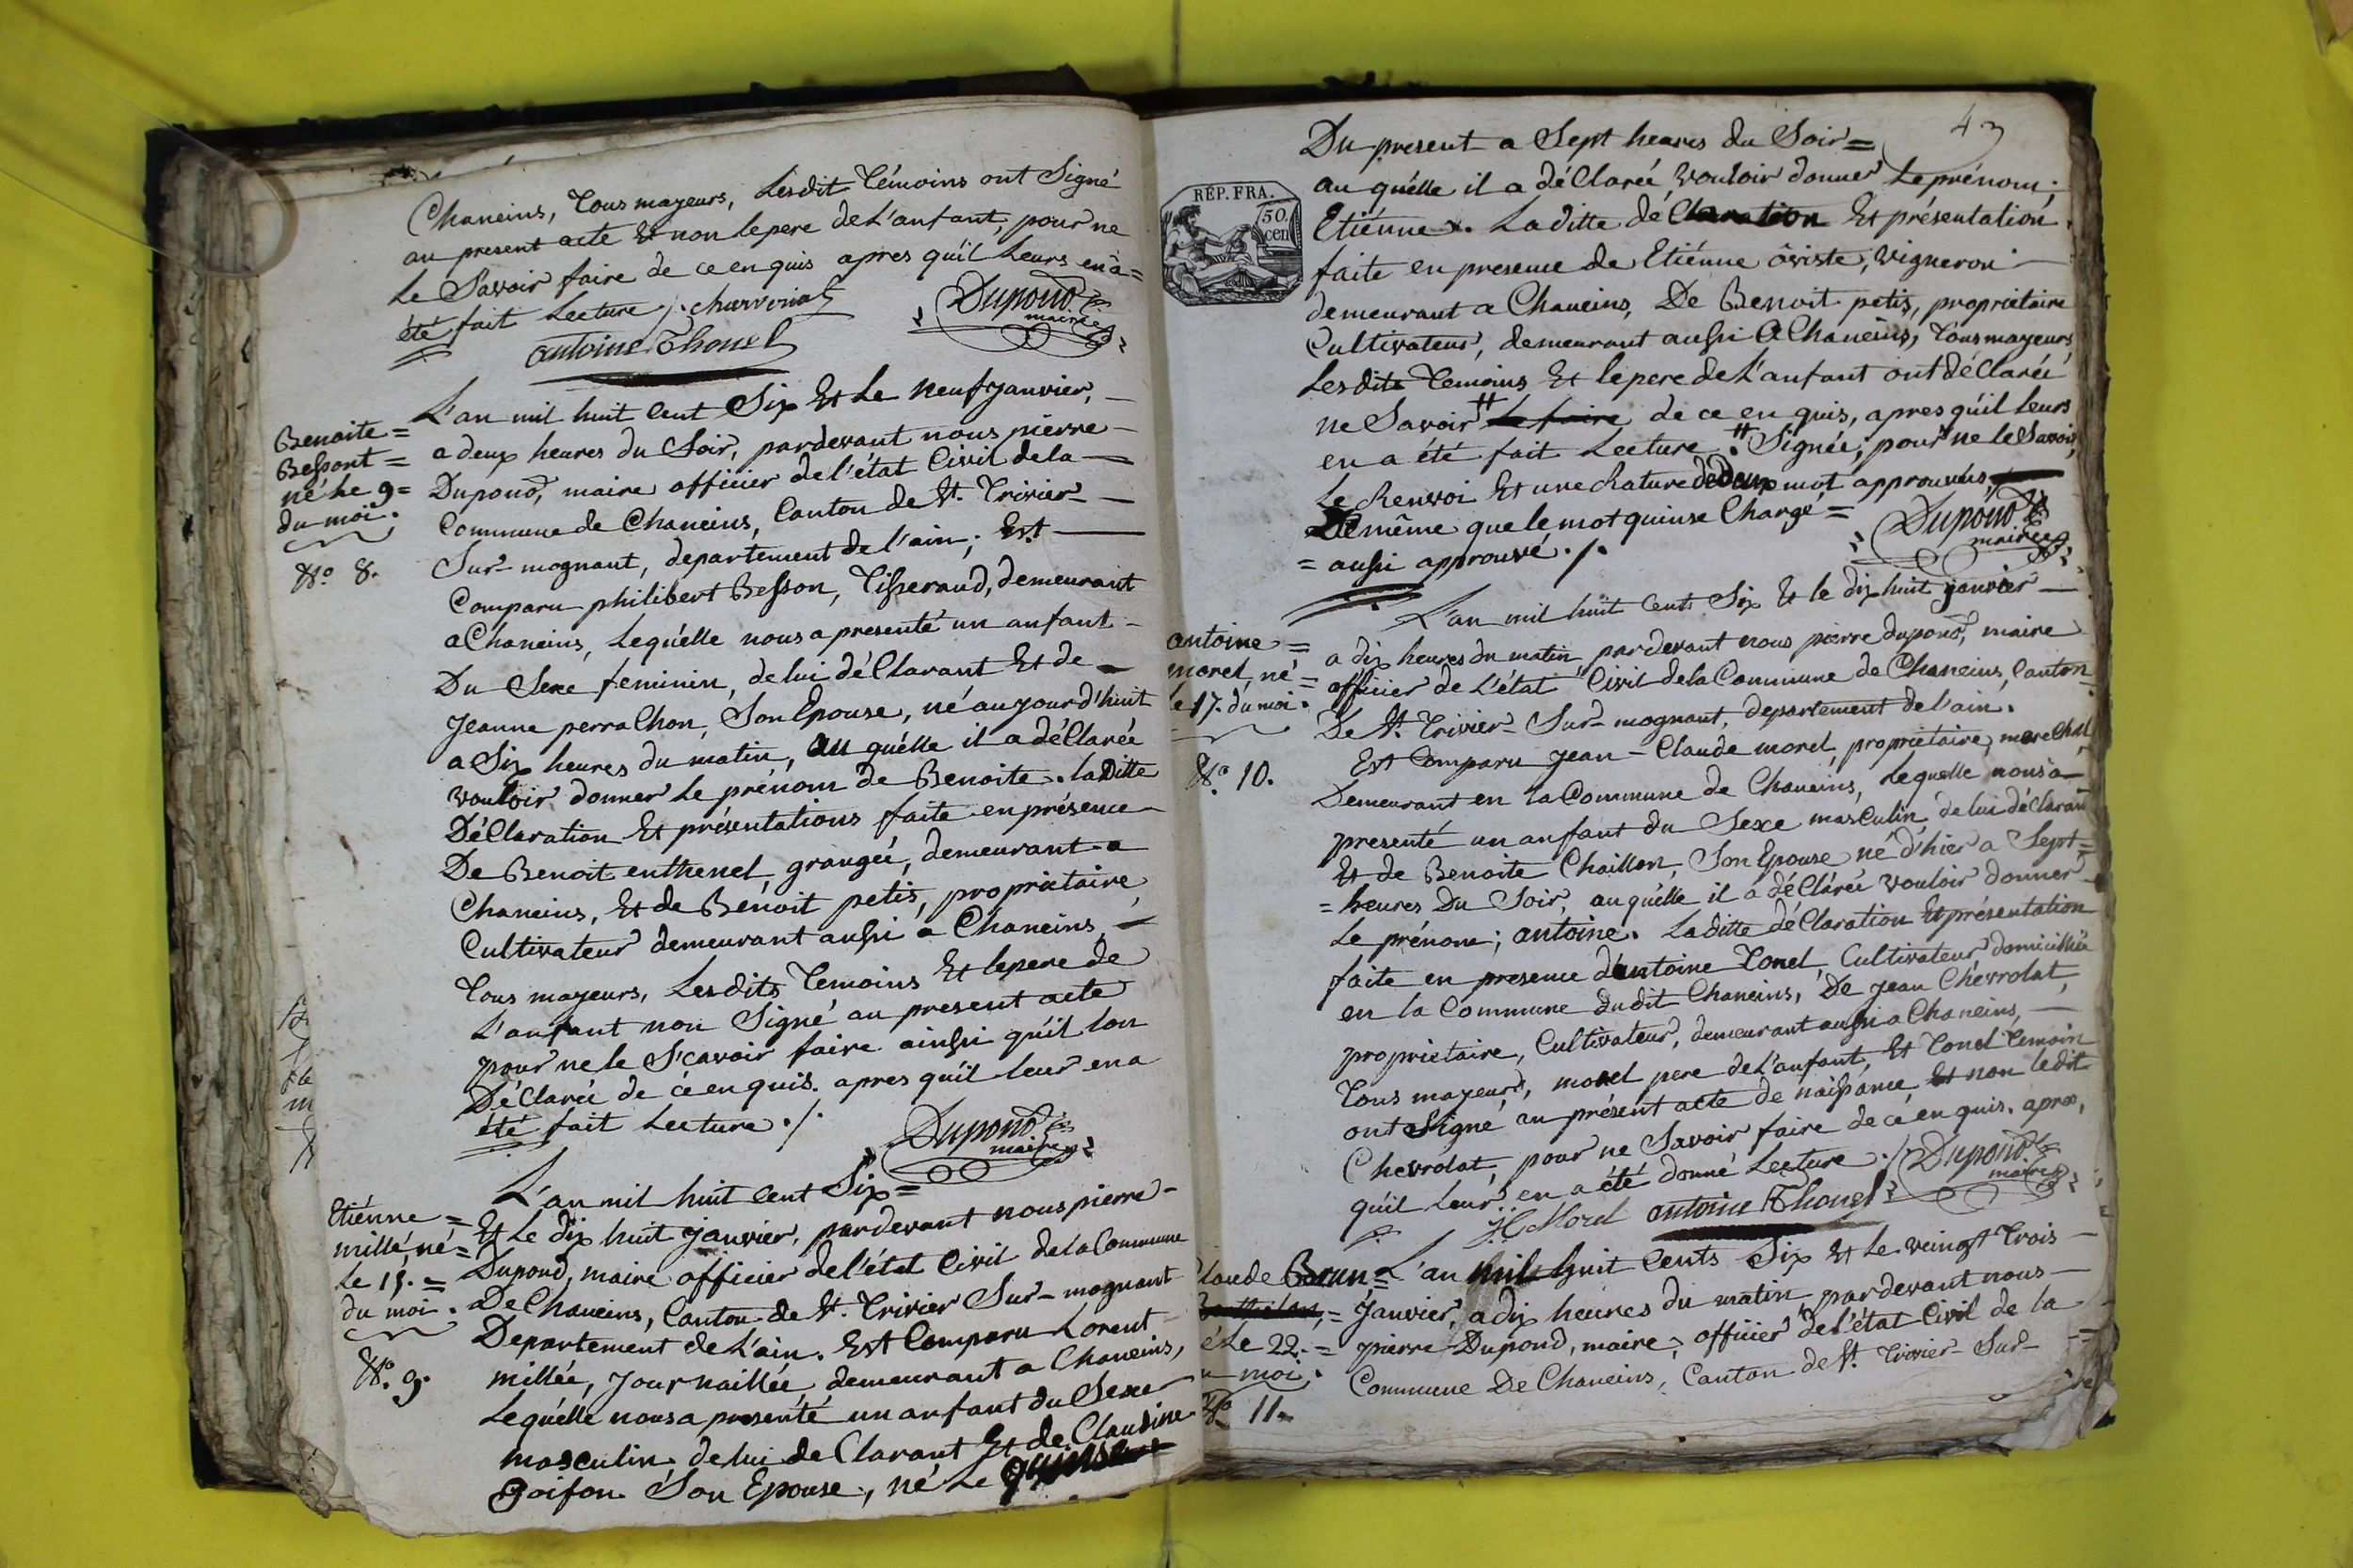 Chaneins, Tous mayeurs, Lesdit Témoins ont Signé
au present acte Et non lepere de L'anfant, pour ne
Le Savoir faire de ce en quis apres qu'il Leurs en a =
été fait Lecture ./. 
Dupond
maire
antoine Thonel
Benoite =
Besson =
né Le 9 =
du moi.
N.o 8.
L'an mil huit Cent Six Et Le neuf janvier,
a deux heures du Soir, pardevant nous pierre
Dupond, maire officier de l'état Civil de la
Commune de Chaneins, Canton de St. Trivier
Sur-mognant, departement de l'ain; Est
Comparu philibert Besson, Tisserand, demeurant
a Chaneins, Lequ'elle nous a presenté un anfant
Du Sexe feminin, de lui déClarant Et de
Jeanne perraChon, Son Epouse, né aujourd'huit
a Six heures du matin, au qu'elle il a déClarée
vouloir donner Le prénom de Benoite. laditte
DéClaration Et présentations faite en présence
De Benoit enthenel, grangée, demeurant a
Chaneins, Et de Benoit petis, proprietaire,
Cultivateur demeurant aussi a Chaneins,
Tous mayeurs, Lesdits Temoins Et lepere de
L'anfant non Signé au present acte
pour ne le S'cavoir faire ainssi qu'il lon
DéClarée de ce en quis. apres qu'il leur en a
été fait Lecture ./.
Dupond
maire
Etiénne =
millé, né =
Le 15. =
du moi.
N.o 9.
L'an mil huit cent Six =
Et Le dix huit janvier, pardevant nous pierre
Dupond, maire officier de l'état Civil de la Commune
De Chaneins, Canton de St. Trivier Sur-mognant
Departement de L'ain. Est Comparu Lorent
millée, journaillée demeurant a Chaneins,
Lequ'elle nous a presenté un anfant du Sexe
masculin de lui de Clarant Et de Claudine
Goifon Son Epouse, né Le quinse
43
RÉP. FRA.
50.
cen
Du present a Sept heures du Soir =
au qu'elle il a déClarée vouloir donner Le prénom;
Etiénne. La ditte de Claration Et présentation
faite en presence de Etiénne ôviste, vigneron
demeurant a Chaneins, De Benoit petis, proprietaire
Cultivateur, demeurant aussi a Chaneins, Tous mayeurs
Lesdits Temoins Et lepere de L'anfant ont déClarée
ne Savoir # Le faire de ce en quis, apres qu'il leurs
en a été fait Lecture. # Signée, pour ne le Savoir,
Le Renvoi Et une Rature de Deux mot approuvés,
De même que le mot quinse Chargé =
= aussi approuvé ./.
Dupond
maire
antoine =
morel, né =
le 17. du moi.
N.o 10.
L'an mil huit Cents Six Et le dix huit janvier
a dix heures du matin pardevant nous pierre dupond, maire
officier de L'état Civil de la Commune de Chaneins, Canton
De St. Trivier Sur-mognant, departement de l'ain.
Est Comparu Jean-Claude morel, proprietaire, mareChal
Demeurant en la Commune de Chaneins, Lequelle nous a
presenté un anfant du Sexe masCulin de lui déClarant
Et de Benoite Chaillon, Son Epouse né d'hier a Sept =
= heures Du Soir, au qu'elle il a déClarée vouloir donner
Le prénom; antoine. La ditte déClaration Et présentation
faite en presence d'antoine Tonel, Cultivateur, domicilliée
en la Commune dudit Chaneins, De Jean Chevrolat,
proprietaire, Cultivateur, demeurant aussi a Chaneins,
Tous mayeurs, morel pere de L'anfant, Et Tonel Temoin
ont Signé au présent acte de naissance Et non ledit
Chevrolat, pour ne Savoir faire de ce en quis. apres,
qu'il Leur en a été donné Lecture ./.
Dupond
maire
JC Morel antoine Thonel
Claude Brun =
Le 22. =
moi.
N.o 11.
L'an mil huit Cents Six Et Le veingt Trois
Janvier, a dix heures du matin pardevant nous
pierre Dupond, maire, officier de l'état Civil de la
Commune De Chaneins, Canton de St. Trivier-Sur-